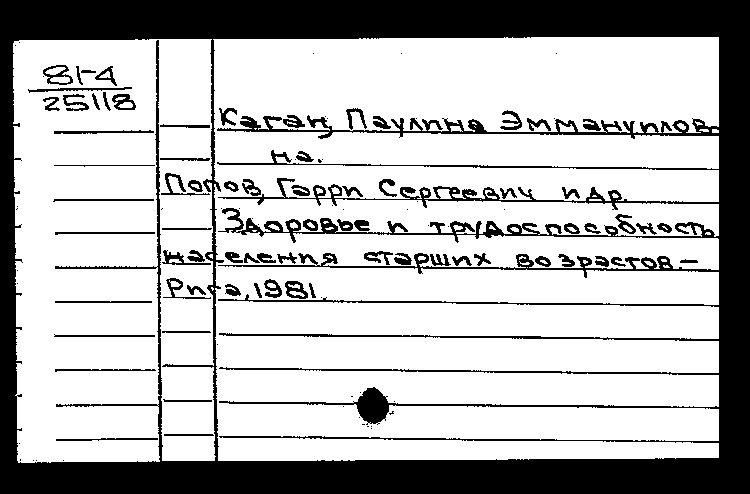 81-4
25118
Каган, Паулина Эммануилов-
на.
Попов, Гарри Сергеевич и др.
Здоровье и трудоспособность
населения старших возрастов.—
Рига, 1981.